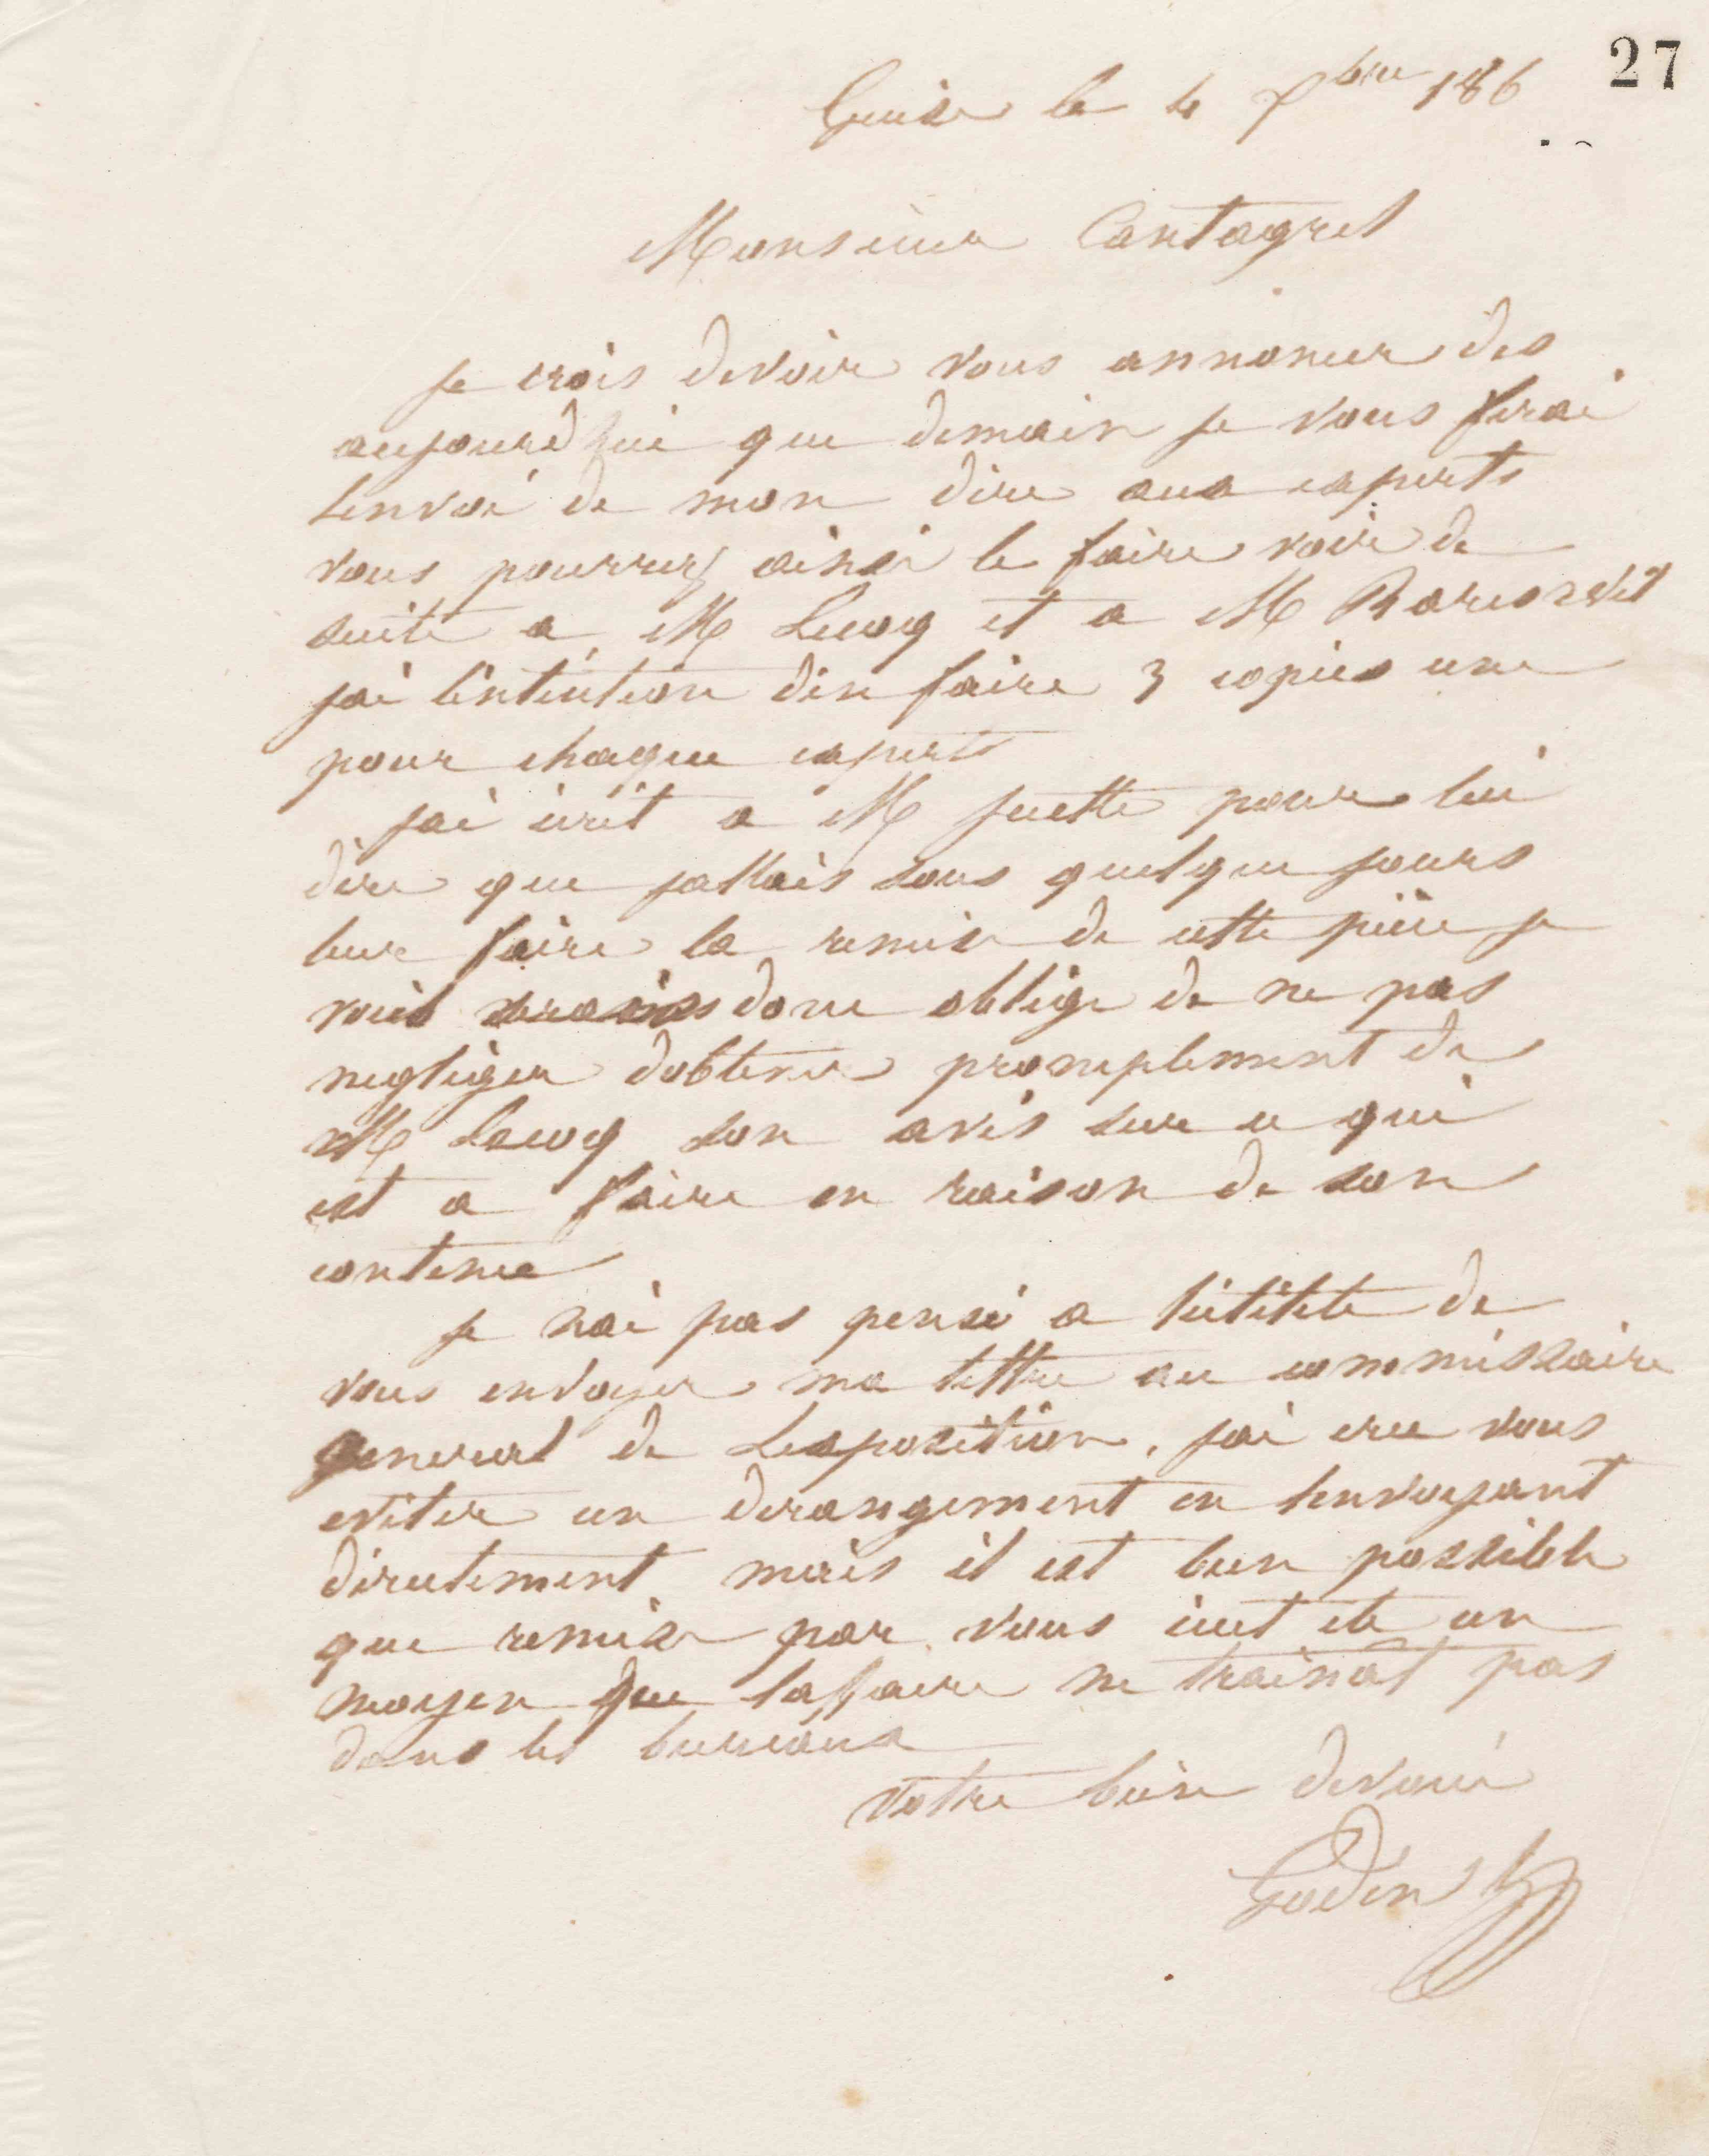 27
Guise le 4 7bre 186
Monsieur Cantagrel
je crois devoir vous annoncer des
aujourd hui que demain je vous ferai
lenvoi de mon dire aux experts
vous pourrez ainsi le faire voir de
suite a M Lecoq et a M
jai lintention den faire 3 copies une
pour chaque experts
jai écrit a M juette pour lui
dire que jallais sous quelque jours
leur faire la remise de cette pièce je
donc obligé de ne pas
negliger dobtenir promptement de
M Lecoq son avis sur ce qui
est a faire en raison de son
contenu
je nai pas pensé a lutilité de
vous envoyer ma lettre au commissaire
general de Lexposition, jai cru vous
eviter un derangement en lenvoyant
directement mais il est bien possible
que remise par vous eut été un
moyen que laffaire ne trainat pas
dans les bureaux
Votre bien dévoué
Godin